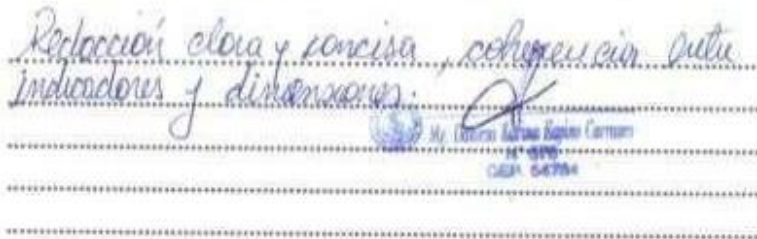 Redacción clara y concisa, coherencia entre
indicadores y dimensiones.
Mg.
N° 
CEP. 54784